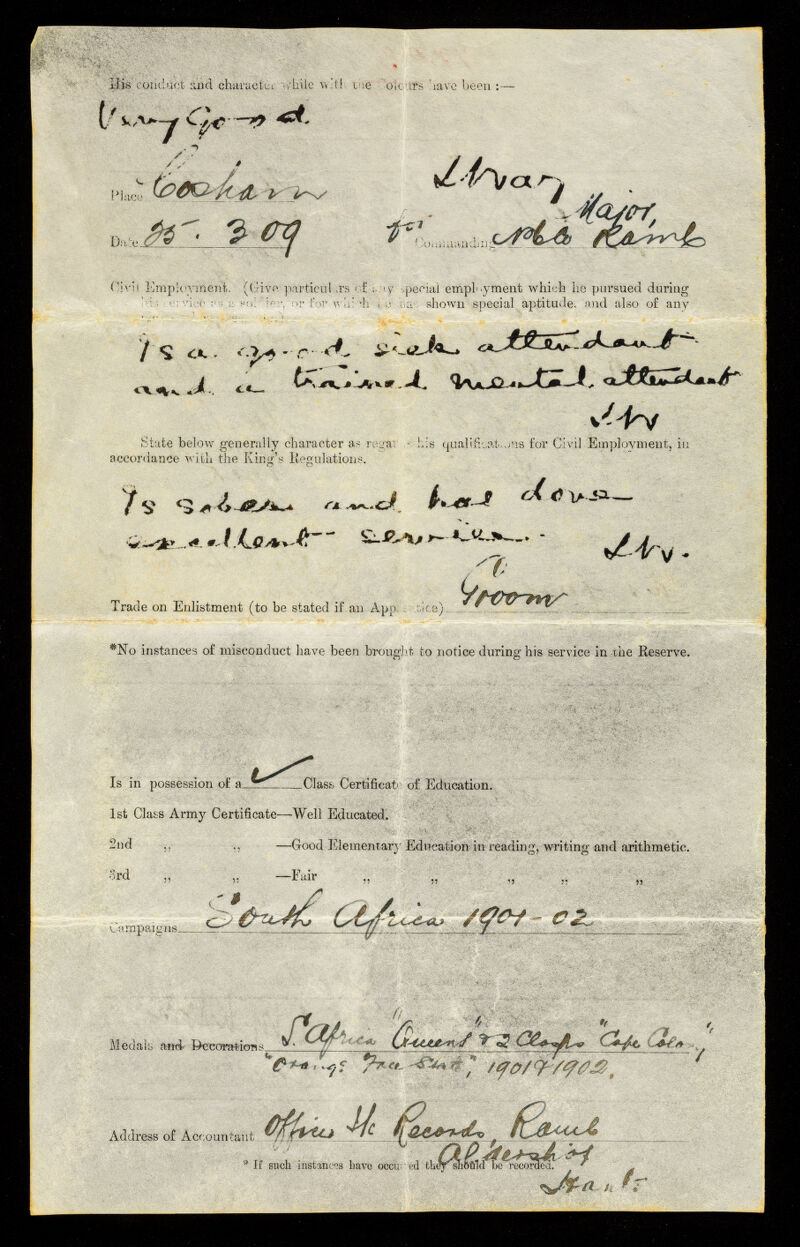 His conduct and character while with the Colours have been :—
Very Good.
Place Cosham
Major,
Date 25. 3 09 for Commanding No 6 Co RAMC
Civil Employment. (Give particulars of any special employment which he pursued during
his service as a soldier, or for which he has shown special aptitude, and also of any
Is a good sick attendant
and a trained mental attendant
State below generally character as regards his qualifications for Civil Employment, in
accordance with the King's Regulations.
Is sober and has done
excellent service.
Trade on Enlistment (to be stated if an Apprentice) Groom
*No instances of misconduct have been brought to notice during his service in the Reserve.
Is in possession of a Class Certificate of Education.
1st Class Army Certificate—Well Educated.
2nd ,, ,, —Good Elementary Education in reading, writing and arithmetic.
3rd ,, ,, —Fair ,, ,, ,, ,, ,,
Campaigns South Africa 1901-02
Medals and Decorations S. Africa "Queens" & 2 Clasps "Cape Colony"
"Orange Free State", 1901 & 1902.
Address of Accountant Office i/c Records, RAMC
Aldershot
* If such instances have occurred they should be recorded.
Hants